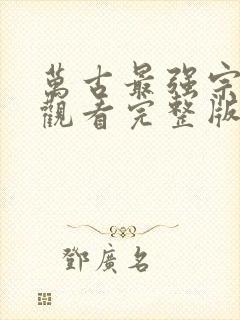 萬古最强宗
觀看完整版
鄧廣名